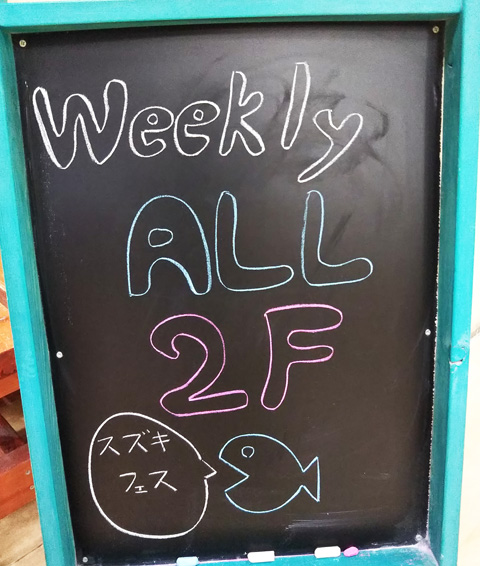 Weekly
ALL
2F
スズキ
フェス